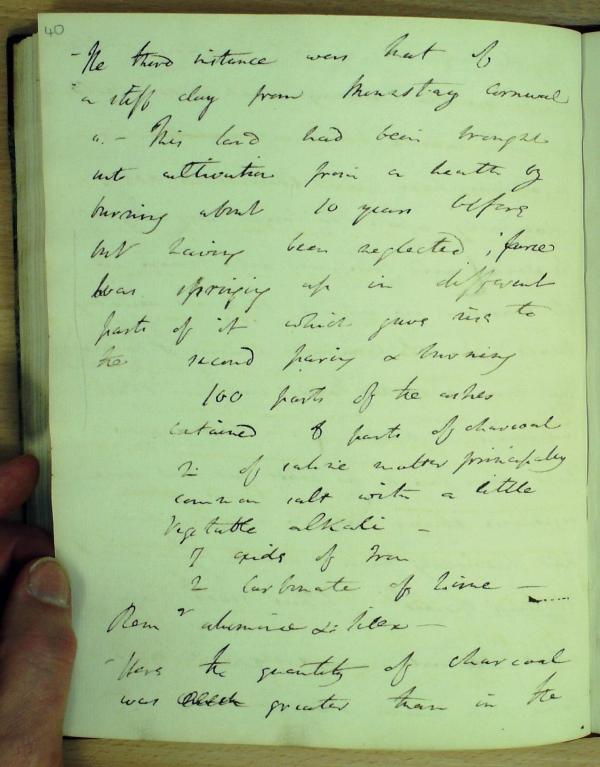 40
- The third instance was that of
a stiff clay from Mounts-bay Cornwall
. - This land had been brought
into cultivation from a heath by
burning about 10 years before
but having been neglected; furze
was springing up in different
parts of it which gave rise to
the second paring & burning
100 parts of the ashes
contained 8 parts of charcoal
2. of saline matter principally
common salt with a little
Vegetable alkali -
7 oxide of Iron
2 Carbonate of Lime -
Remr alumine & silex -
- Here the quantity of charcoal
was greater than in the